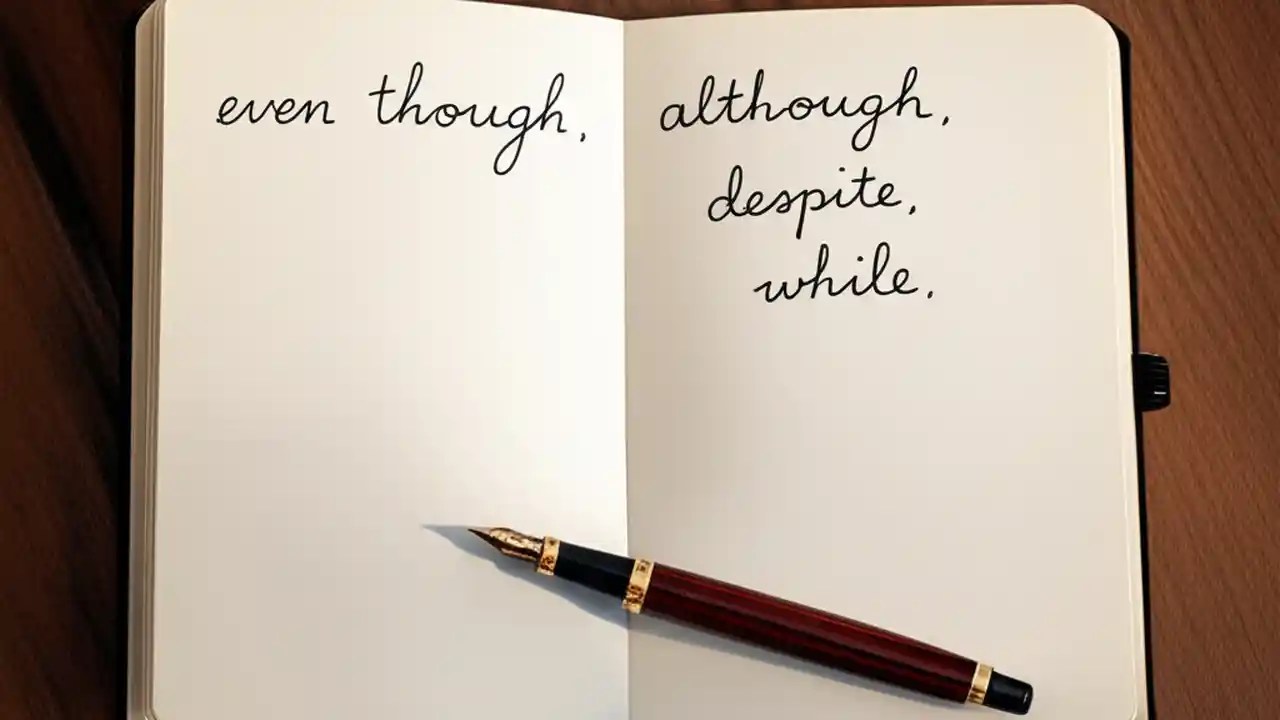 even though,
although,
despite,
while.